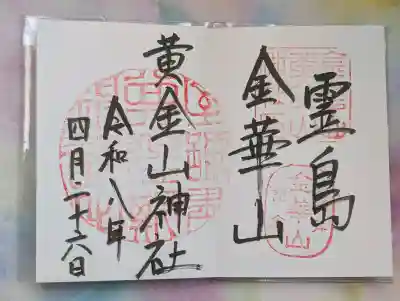 霊島
金華山
黄金山神社
令和八年
四月二十六日